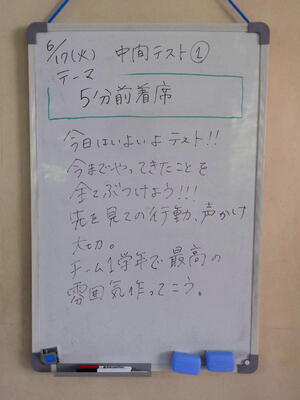 6/17(火) 中間テスト①
テーマ
5分前着席
今日はいよいよテスト!!
今までやってきたことを
全てぶつけよう!!!
先を見ての行動、声かけ
大切。
チーム1学年で最高の
雰囲気作ってこう。